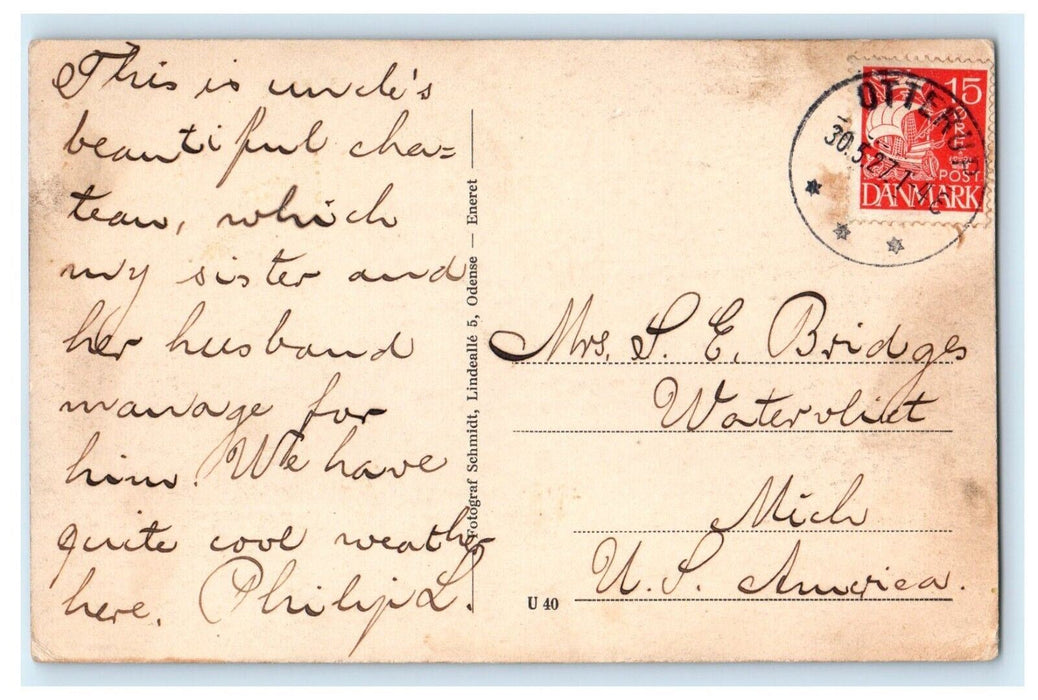 This is uncle's
beautiful cha=
teau, which
my sister and
her husband
manage for
him. We have
quite cool weather
here. Philip L.
Fotograf Schmidt, Lindeallé 5, Odense — Eneret
U 40
15
ØRE
POST
DANMARK
OTTERUP
30.5.27.
Mrs. S. E. Bridges
Watervliet
Mich
U. S. America.